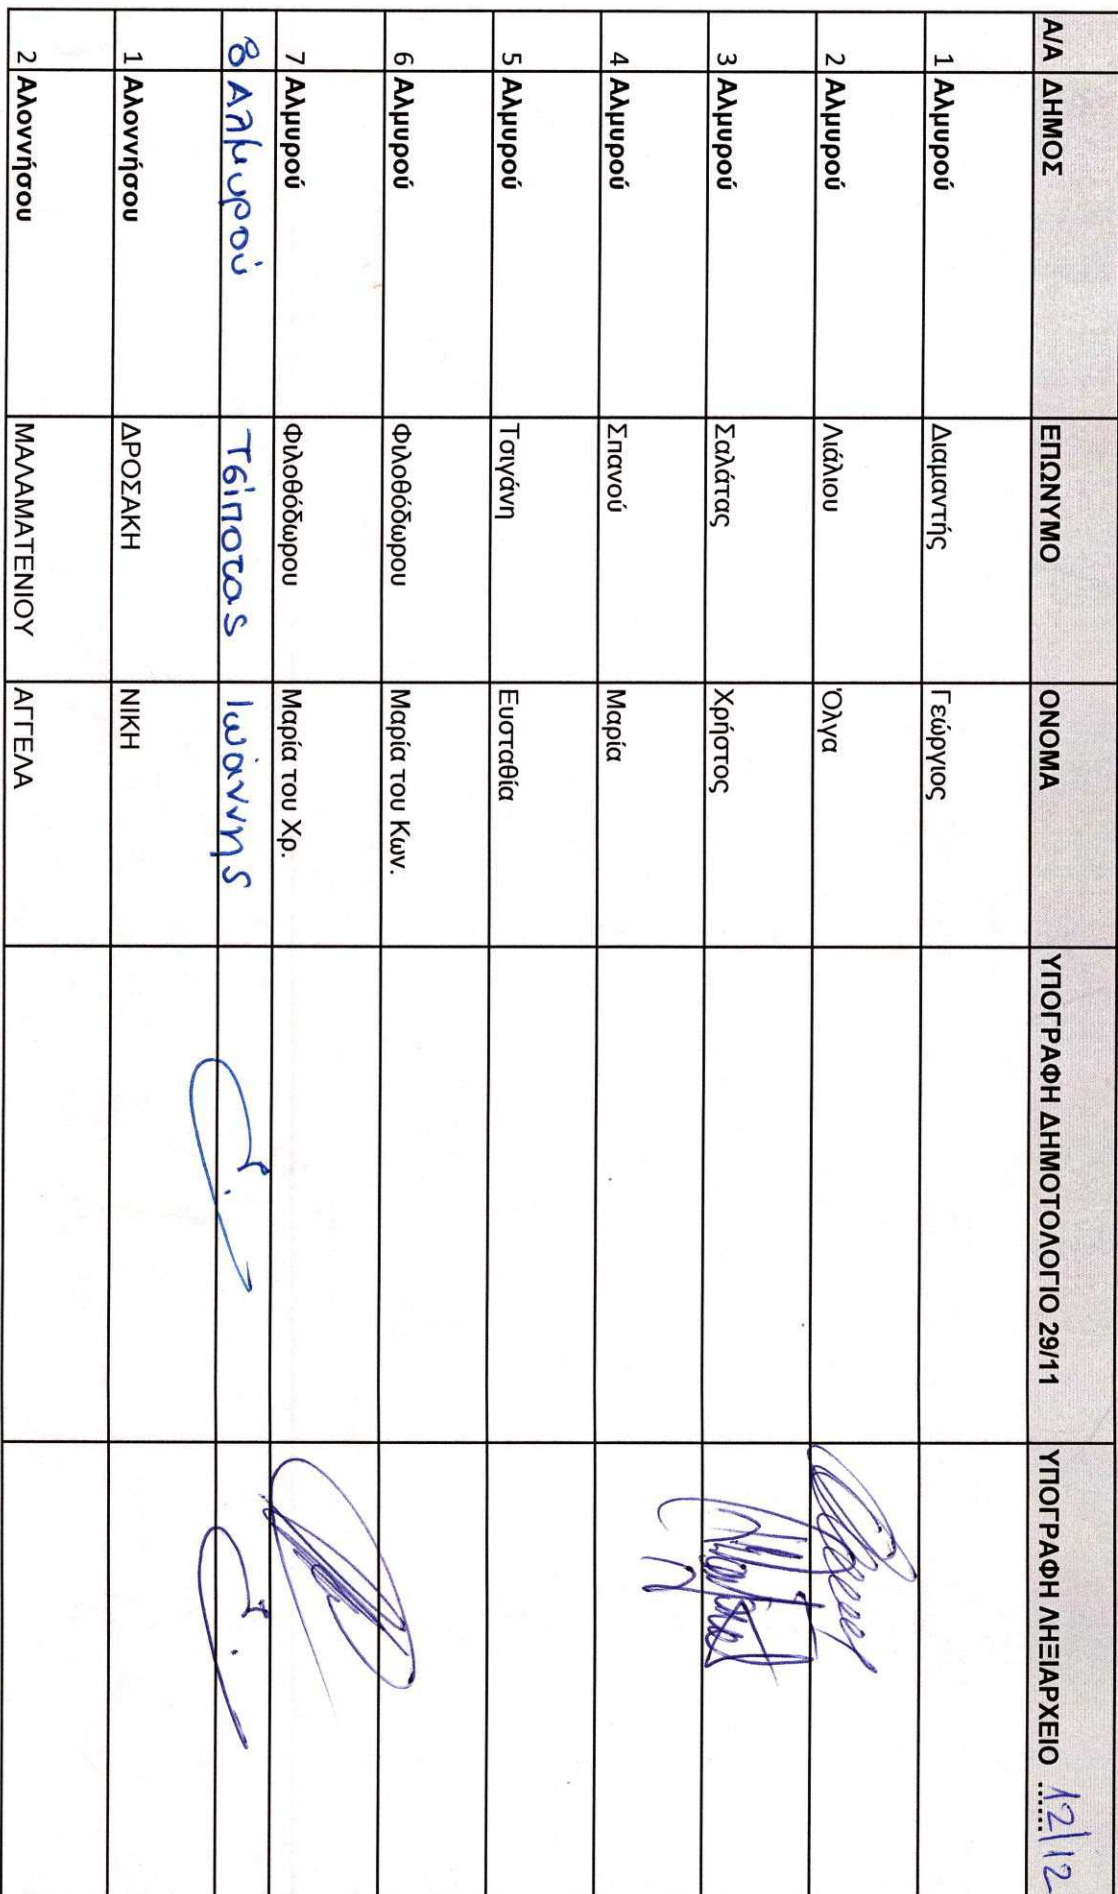 Α/Α ΔΗΜΟΣ ΕΠΩΝΥΜΟ ΟΝΟΜΑ ΥΠΟΓΡΑΦΗ ΔΗΜΟΤΟΛΟΓΙΟ 29/11 ΥΠΟΓΡΑΦΗ ΛΗΞΙΑΡΧΕΙΟ ...... 12/12
1 Αλμυρού Διαμαντής Γεώργιος
2 Αλμυρού Λιάλιου Όλγα
3 Αλμυρού Σαλάτας Χρήστος
4 Αλμυρού Σπανού Μαρία
5 Αλμυρού Τσιγάνη Ευσταθία
6 Αλμυρού Φιλοθόδωρου Μαρία του Κων.
7 Αλμυρού Φιλοθόδωρου Μαρία του Χρ.
8 Αλμυρού Τσίποτας Ιωάννης
1 Αλοννήσου ΔΡΟΣΑΚΗ ΝΙΚΗ
2 Αλοννήσου ΜΑΛΑΜΑΤΕΝΙΟΥ ΑΓΓΕΛΑ